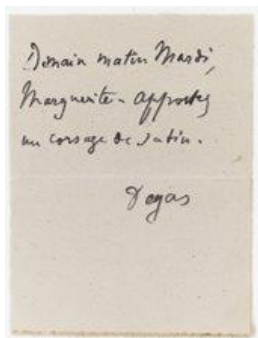 Demain matin Mardi,
Marguerite - Apportez
un corsage de satin.
Degas